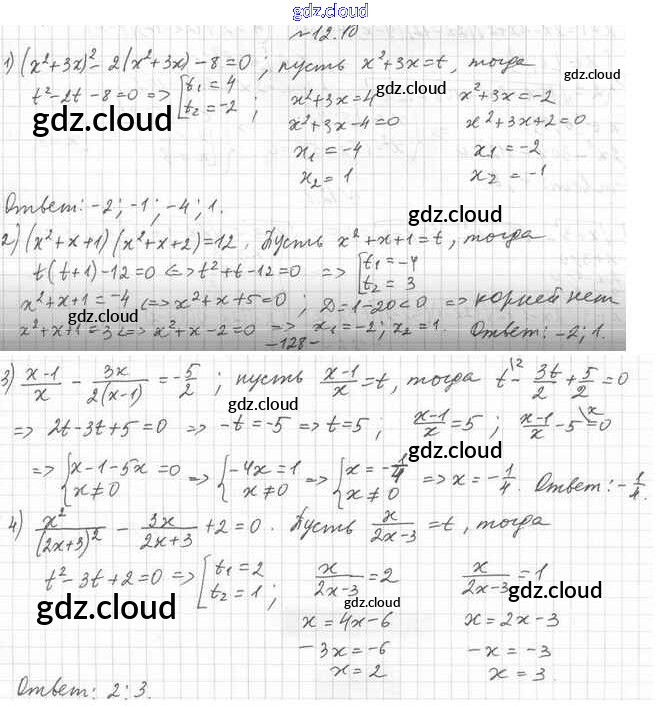 gdz.cloud
№12.10
1) (x²+3x)²-2(x²+3x)-8=0; пусть x²+3x=t, тогда
gdz.cloud
t²-2t-8=0 => [t₁=4 t₂=-2; x²+3x=4 x²+3x=-2
gdz.cloud
x²+3x-4=0 x²+3x+2=0
x₁=-4 x₁=-2
x₂=1 x₂=-1
Ответ: -2; -1; -4; 1.
gdz.cloud
2) (x²+x+1)(x²+x+2)=12. Пусть x²+x+1=t, тогда
t(t+1)-12=0 <=> t²+t-12=0 => [t₁=-4 t₂=3
x²+x+1=-4 <=> x²+x+5=0; D=1-20<0 => корней нет
gdz.cloud
x²+x+1=3 <=> x²+x-2=0 => x₁=-2; x₂=1. Ответ: -2; 1.
-128-
3) (x-1)/x - 3x/(2(x-1)) = -5/2; пусть (x-1)/x=t, тогда t\² - 3t/2 + 5/2 = 0
gdz.cloud
=> 2t-3t+5=0 => -t=-5 => t=5; (x-1)/x=5; (x-1)/x-5\x=0
gdz.cloud
=> {x-1-5x=0 x≠0 => {-4x=1 x≠0 => {x=-1/4 x≠0 => x=-1/4. Ответ: -1/4.
4) x²/(2x+3)² - 3x/(2x+3) + 2=0. Пусть x/(2x-3)=t, тогда
t²-3t+2=0 => [t₁=2 t₂=1; x/(2x-3)=2 x/(2x-3)=1
gdz.cloud
gdz.cloud
gdz.cloud
x=4x-6 x=2x-3
-3x=-6 -x=-3
x=2 x=3.
Ответ: 2; 3.